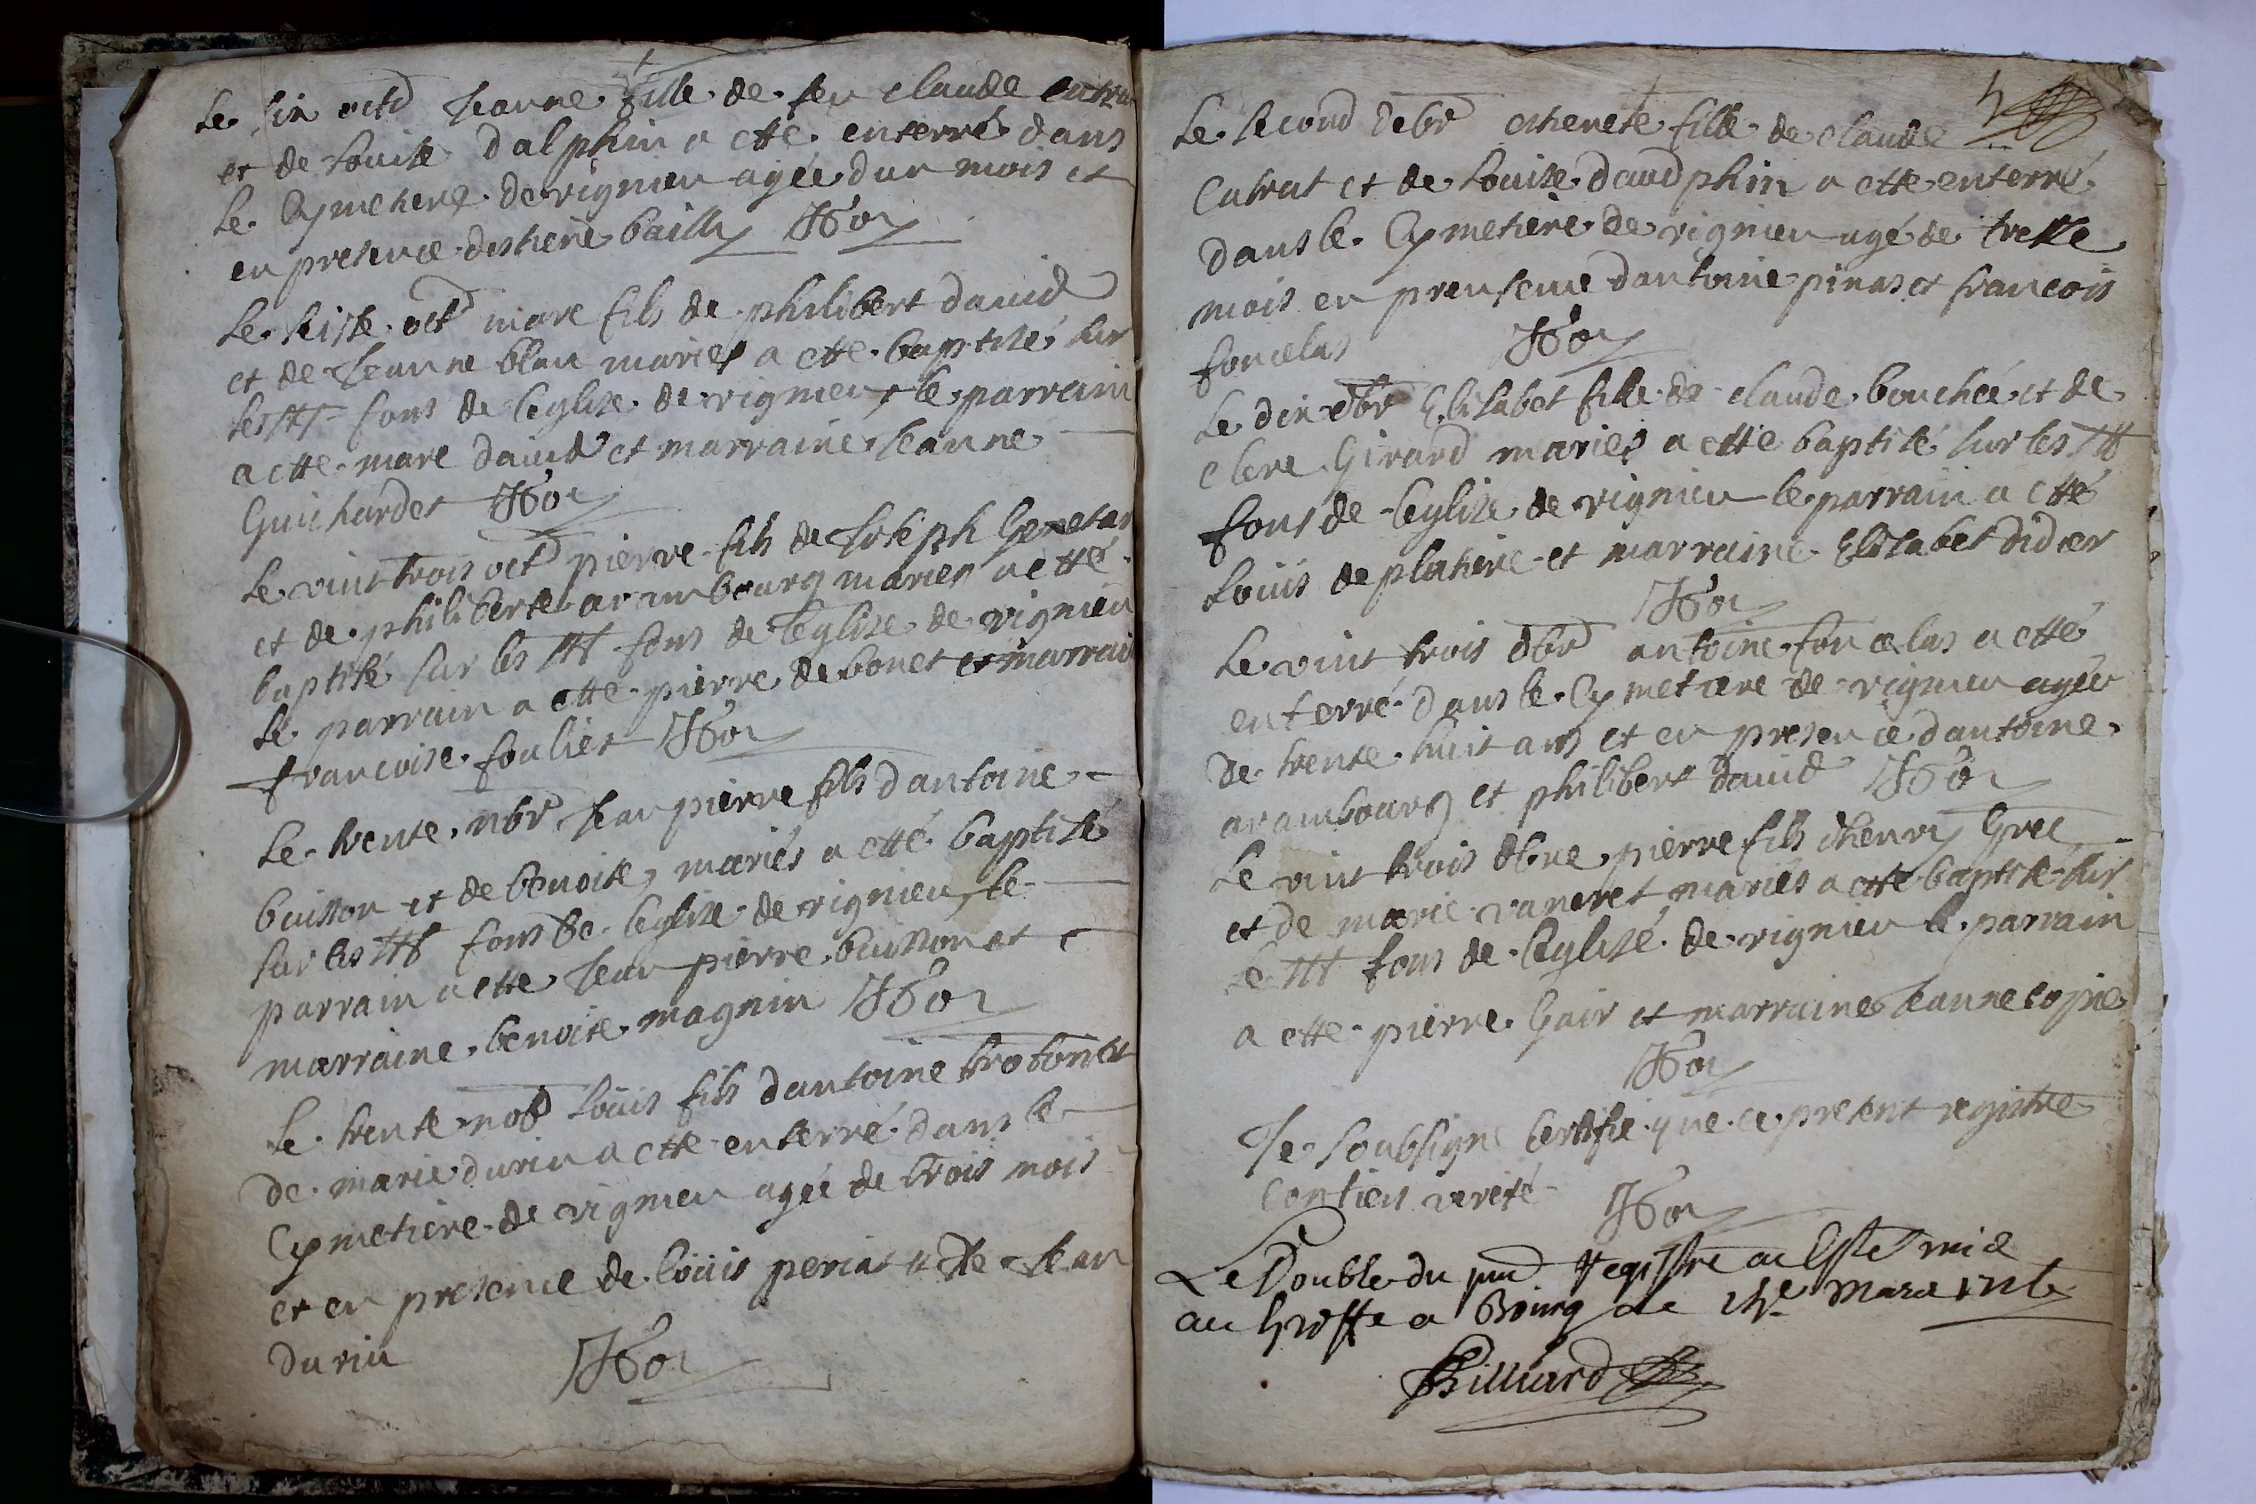 Le six octb Jeanne fille de feu claude cutrat
et de Louise dalphin a ette enterré dans
le Cymetiere de vignieu agée dun mois et
en presence destiene bailly
Le seiste octb marc fils de philibert david
et de Jeanne blan mariés a ette baptisé sur
les fons de leglise de vignieu le parrain
a ette marc david et marraine Jeanne
Guichardet
Le vint trois octb pierre fils de Joseph
et de philiberte arambourg mariés a etté
baptisé sur les fons de leglise de vignieu
le parrain a ette pierre debonet et marrai
francoise foulier
Le trente nbr Jean pierre fils dantoine
buisson et de benoite mariés a etté baptisé
sur les fons de leglise de vignieu le
parrain a ette Jean pierre buisson et
marraine benoite magnin
Le trente nob Louis fils dantoine trobonet
de marie duriu a ette enterré dans le
Cymetiere de vignieu agée de trois mois
et en presence de Loüis periat et de Jean
duriu
Le second debr fille de claude
Cutrat et de Louise daudphin a ette enterré
dans le Cymetiere de vignieu agé de tresse
mois en preusence dantoine pinas et francois
foncelas
Le dix dbr Elisabet fille de claude bouchée et de
clere Girard mariés a ette baptisé sur les
fons de leglise de vignieu le parrain a etté
Loüis deplatiere et marraine Elisabet didier
Le vint trois dbr antoine foncelas a etté
enterré dans le Cymetiere de vignieu agée
de trente huit ans et en presence dantoine
arambourg et philibert david
Le vint trois dbre pierre fils dhenry Gree
et de marie vaneret mariés a ette baptisé sur
le fons de leglise de vignieu le parrain
a ette pierre Guir et marraine Jeanne copie
Je soubsigné Certifie que ce present registre
Contient verité
Le Double du pnt Registre a Esté mid
au Greffe a Bourg le
Billiard